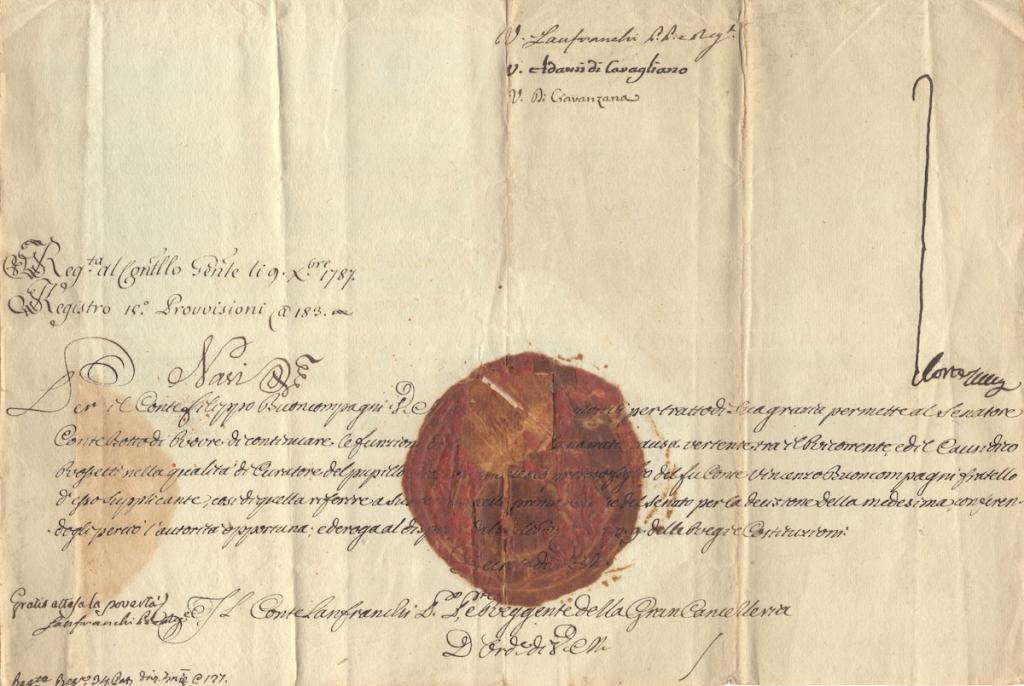 V. Lanfranchi P. P. e Regg.te
V. Adami di Cavagliano
V. Di Cravanzana
Reg.ta al Cont.llo Gen.le li 9. X.bre 1787.
Registro 15.° Provvisioni @ 183.
Nasi
Per il Conte Filippo Buoncompagni S. M. per tratto di Sua grazia permette al Senatore
Conte Botto di Rovre di continuare le funzioni narrata causa vertente tra il Ricorrente, ed il Causidico
Rossetti nella qualità di Curatore del pupillo figlio del fu Conte Vincenzo Buoncompagni fratello
d'esso Supplicante, così di quella riferire a prima del Senato per la decisione della medesima, conferen-
dogli perciò l'autorità opportuna, e deroga al delle Regie Costituzioni.
Gratis attesa la povertà
Lanfranchi
Il Conte Lanfranchi P. P.te e Reggente della Gran Cancelleria
D'Ord.e di S. M.